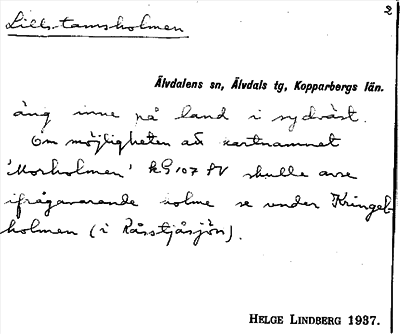 2
Lills-tamsholmen
Älvdalens sn, Älvdals tg, Kopparbergs län.
äng inne på land i sydväst.
Om möjligheten att kartnamnet
'Morholmen' kG 107 SV skulle avse
ifrågavarande holme se under Kringel-
holmen (i Rässtjåsjön).
HELGE LINDBERG 1937.